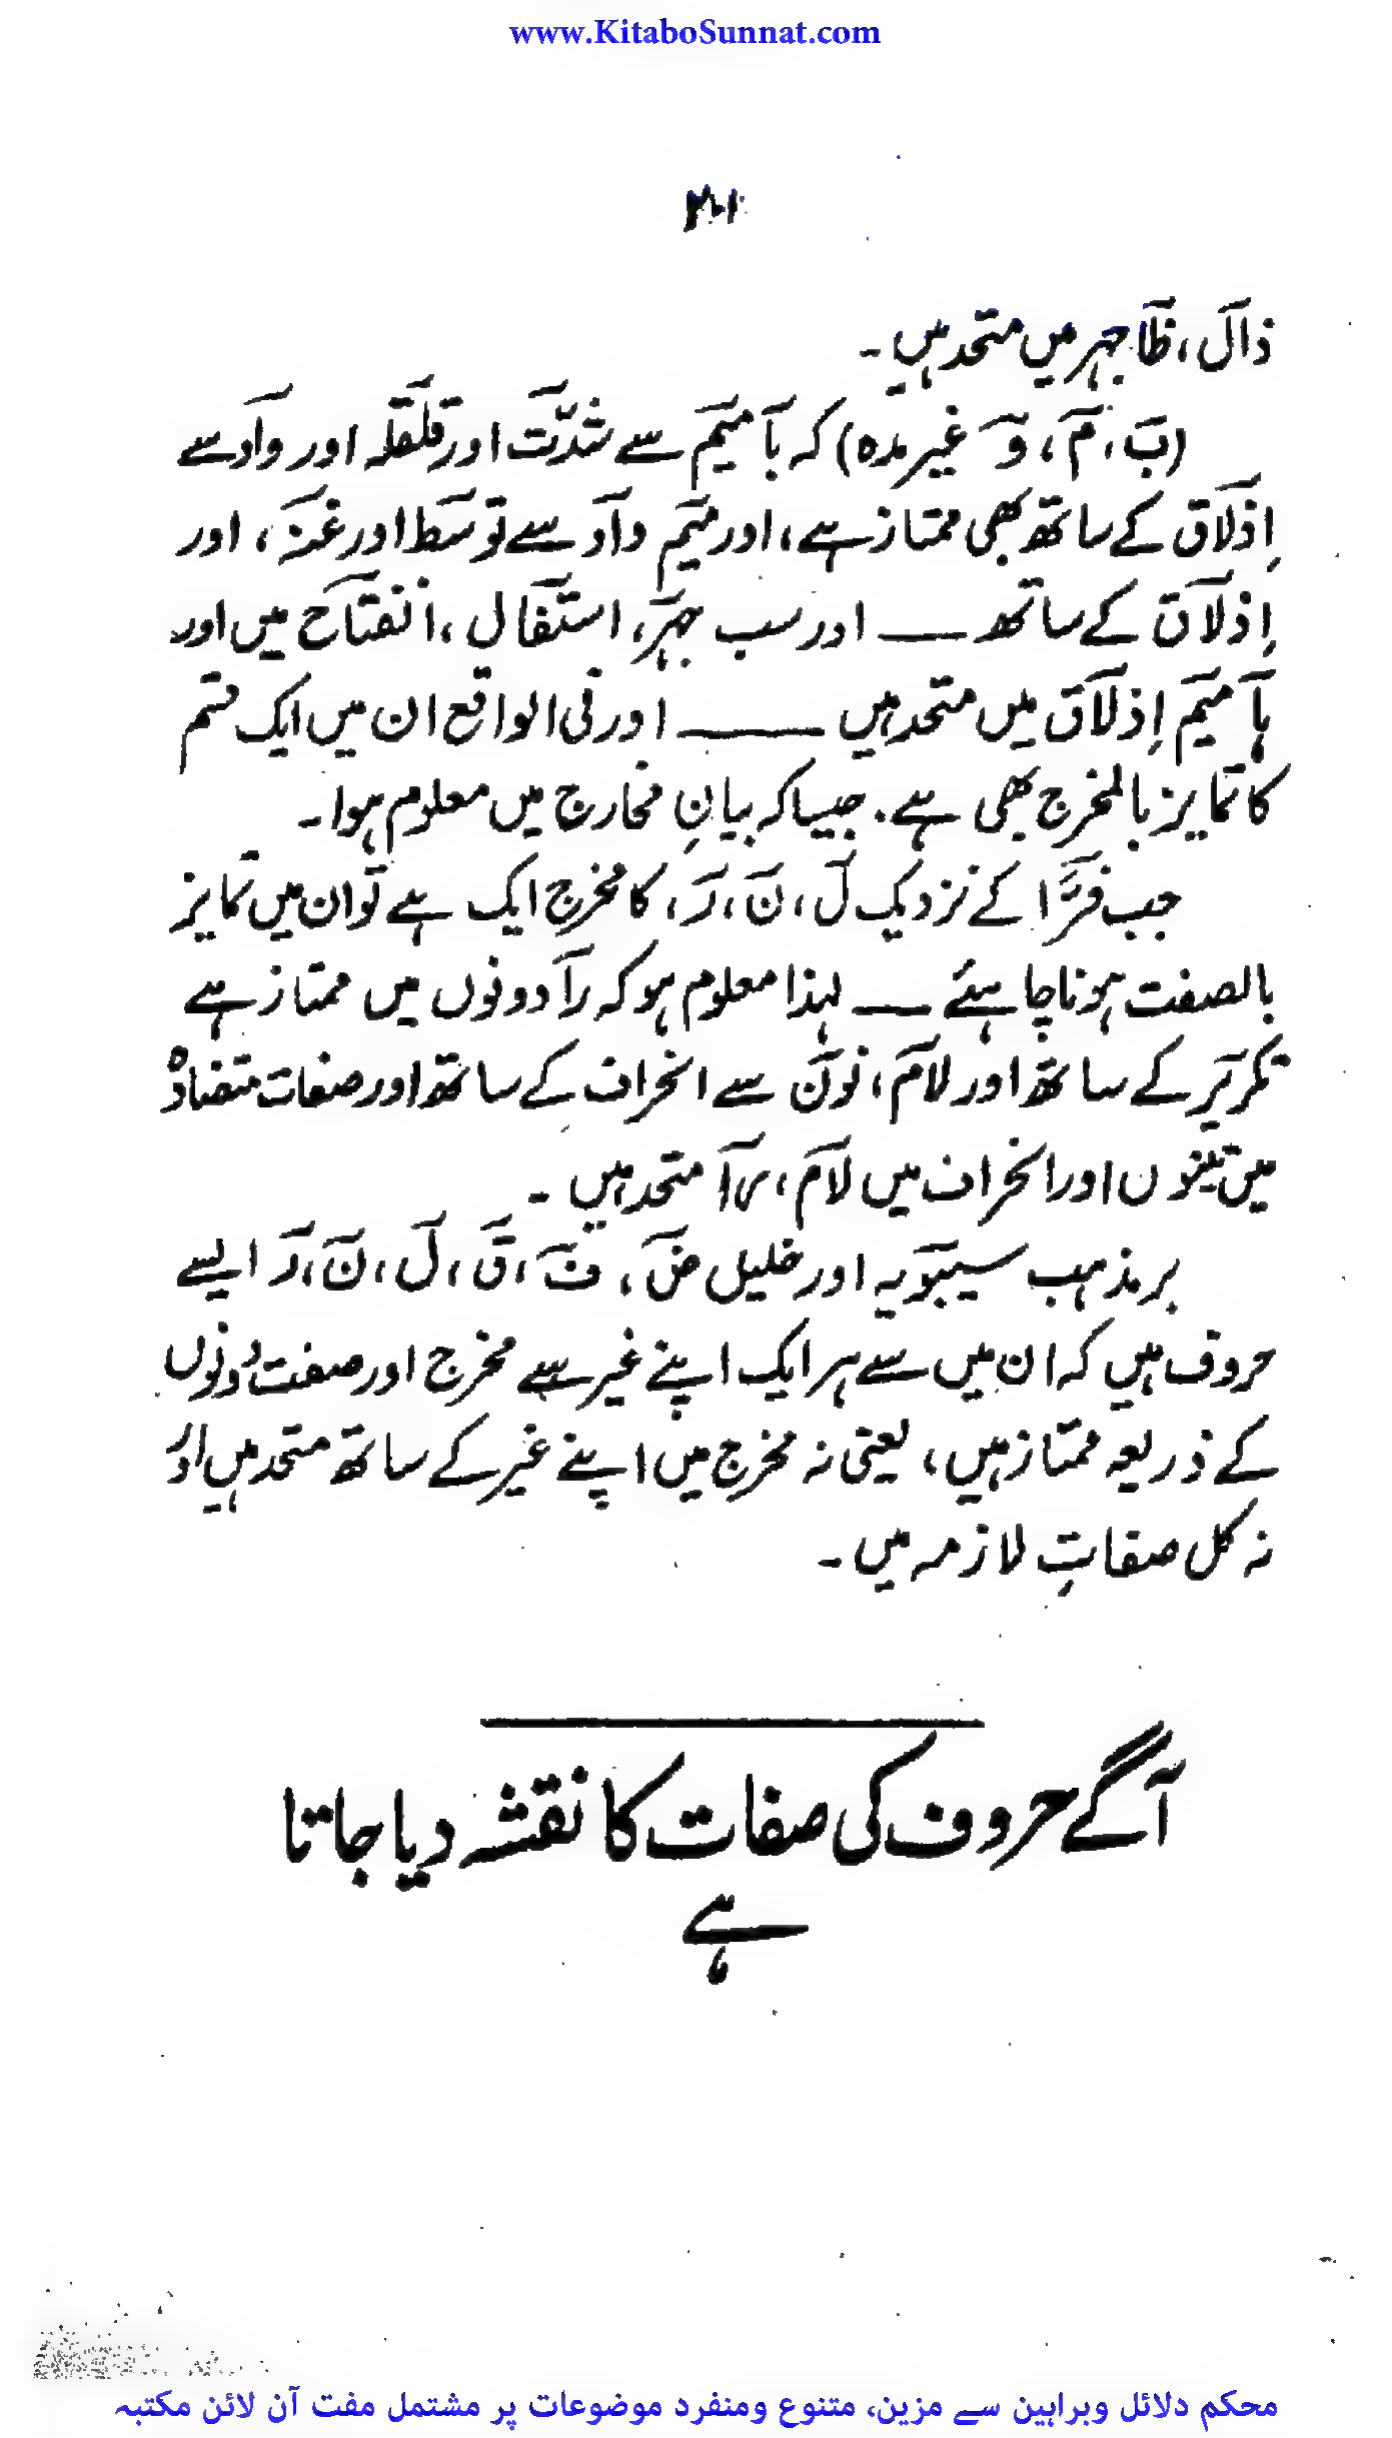 www.KitaboSunnat.com
ذال، ظا جہر میں متحد ہیں۔
(ب، م، و غیر مدہ) کہ با میم سے شدّت اور قلقلہ اور واو سے
اِذلاق کے ساتھ بھی ممتاز ہے، اور میم واو سے توسط اور غنہ، اور
اِذلاق کے ساتھ ــــ اور سب جہر، استفال، انفتاح میں اور
با میم اِذلاق میں متحد ہیں ــــ اور فی الواقع ان میں ایک قسم
کا تمایز بالمخرج بھی ہے۔ جیسا کہ بیانِ مخارج میں معلوم ہوا۔
جب فرّا کے نزدیک ل، ن، ر، کا مخرج ایک ہے تو ان میں تمایز
بالصفت ہونا چاہئے ــــ لہذا معلوم ہو کہ را دونوں میں ممتاز ہے
تکریر کے ساتھ اور لام، نون سے انحراف کے ساتھ اور صفات متضادہ
میں تینوں اور انحراف میں لام، را متحد ہیں۔
بر مذہب سیبویہ اور خلیل ض، ف، ق، ل، ن، ر ایسے
حروف ہیں کہ ان میں سے ہر ایک اپنے غیر سے مخرج اور صفت دونوں
کے ذریعہ ممتاز ہیں، یعنی نہ مخرج میں اپنے غیر کے ساتھ متحد ہیں اور
نہ کل صفاتِ لازمہ میں۔
آگے حروف کی صفات کا نقشہ دیا جاتا
ہے
محکم دلائل وبراہین سے مزین، متنوع ومنفرد موضوعات پر مشتمل مفت آن لائن مکتبہ